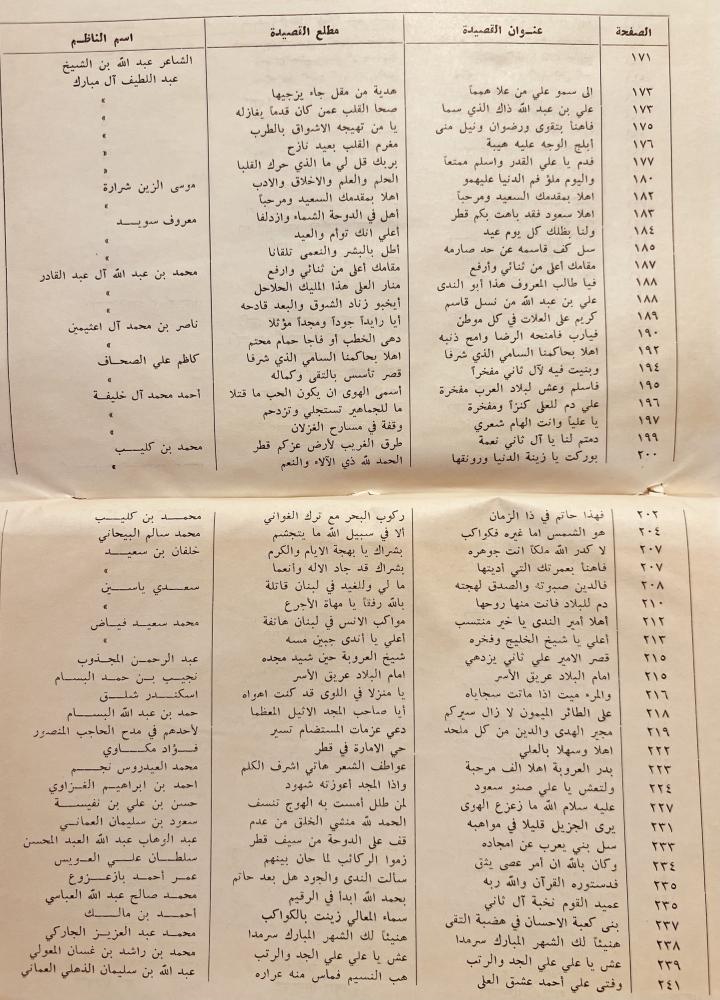 الصفحة عنـوان القصيدة مطلع القصيدة اسم الناظـم
١٧١ الشاعر عبد الله بن الشيخ
عبد اللطيف آل مبارك
١٧٣ الى سمو علي من علا همماً هدية من مقل جاء يزجيها »
١٧٣ علي بن عبد الله ذاك الذي سما صحا القلب عمن كان قدماً يغازله »
١٧٥ فاهنأ بتقوى ورضوان ونيل منى يا من تهيجه الاشواق بالطرب »
١٧٦ أبلج الوجه عليه هيبة مغرم القلب بعيد نازح »
١٧٧ فدم يا علي القدر واسلم ممتعاً بربك قل لي ما الذي حرك القلبا »
١٨٠ واليوم ملؤ فم الدنيا عليهمو الحلم والعلم والاخلاق والادب موسى الزين شرارة
١٨٢ اهلا بمقدمك السعيد ومرحباً اهلا بمقدمك السعيد ومرحباً »
١٨٣ اهلا سعود فقد باهت بكم قطر أهل في الدوحة الشماء وازدلفا معروف سويــد
١٨٤ ولنا بظلك كل يوم عيد أعلي انك توأم والعيد »
١٨٥ سل كف قاسمه عن حد صارمه أطل بالبشر والنعمى تلقانا »
١٨٧ مقامك أعلى من ثنائي وأرفع مقامك أعلى من ثنائي وارفع محمد بن عبد الله آل عبد القادر
١٨٨ فيا طالب المعروف هذا أبو الندى منار العلى هذا المليك الحلاحل »
١٨٨ علي بن عبد الله من نسل قاسم أيخبو زناد الشوق والبعد قادحه »
١٨٩ كريم على العلات في كل موطن أيا رايداً جوداً ومجداً مؤثلا ناصر بن محمد آل اعثيمين
١٩٠ فيارب فامنحه الرضا وامح ذنبه دهى الخطب أو فاجا حمام محتم »
١٩٢ اهلا بحاكمنا السامي الذي شرفا اهلا بحاكمنا السامي الذي شرفا كاظم علي الصحـاف
١٩٤ وبنيت فيه لآل ثاني مفخراً قصر تأسس بالتقى وكماله »
١٩٥ فاسلم وعش لبلاد العرب مفخرة أسمى الهوى ان يكون الحب ما قتلا أحمد محمد آل خليفـة
١٩٦ علي دم للعلى كنزاً ومفخرة ما للجماهير تستجلي وتزدحم »
١٩٧ يا علياً وانت الهام شعري وقفة في مسارح الغزلان »
١٩٩ دمتم لنا يا آل ثاني نعمة طرق الغريب لأرض عزكم قطر محمد بن كليـب
٢٠٠ بوركت يا زينة الدنيا ورونقها الحمد لله ذي الآلاء والنعم »
٢٠٢ فهذا حاتم في ذا الزمان ركوب البحر مع ترك الغواني محمـد بن كليـب
٢٠٤ هو الشمس اما غيره فكواكب ألا في سبيل الله ما يتجشم محمد سالم البيحاني
٢٠٧ لا كدر الله ملكاً انت جوهره بشراك يا بهجة الايام والكرم خلفان بن سعيـد
٢٠٧ فاهنأ بعمرتك التي أديتها بشراك قد جاد الاله وأنعما »
٢٠٨ فالدين صبوته والصدق لهجته ما لي وللغيد في لبنان قاتلة سعـدي ياسـين
٢١٠ دم للبلاد فانت منها روحها بالله رفقاً يا مهاة الأجرع »
٢١٢ أهلا أمير الندى يا خير منتسب مواكب الانس في لبنان هاتفة محمد سعيد فيـاض
٢١٣ أعلي يا شيخ الخليج وفخره أعلي يا أندى جبين مسه »
٢١٥ قصر الامير علي ثاني يزدهي شيخ العروبة حين شيد مجده عبد الرحمـن المجذوب
٢١٥ امام البلاد عريق الأسر امام البلاد عريق الأسر نجيـب بـن حمـد البسـام
٢١٦ والمرء ميت اذا ماتت سجاياه يا منزلا في اللوى قد كنت اهواه اسكنـدر شلـق
٢١٨ على الطائر الميمون لا زال سيركم أيا صاحب المجد الاثيل المعظما حمد بن عبد الله البسـام
٢١٩ مجير الهدى والدين من كل ملحد دعي عزمات المستضام تسير لأحدهم في مدح الحاجب المنصور
٢٢٢ اهلا وسهلا بالعلي حي الامارة في قطر فـؤاد مكـاوي
٢٢٣ بدر العروبة اهلا الف مرحبة عواطف الشعر هاتي اشرف الكلم محمد العيدروس نجـم
٢٢٤ ولتعش يا علي صنو سعود واذا المجد أعوزته شهود احمد بن ابراهيـم الغـزاوي
٢٢٧ عليه سلام الله ما زعزع الهوى لمن طلل أمست به الهوج تنسف حسن بن علي بن نفيسـة
٢٣١ يرى الجزيل قليلا في مواهبه الحمد لله منشي الخلق من عدم سعود بن سليمان العماني
٢٣٣ سل بني يعرب عن امجاده قف على الدوحة من سيف قطر عبد الوهاب عبد الله العبد المحسن
٢٣٤ وكان بالله ان أمر عصى يثق زموا الركائب لما حان بينهم سلطـان علـي العـويس
٢٣٥ فدستوره القرآن والله ربه سألت الندى والجود هل بعد حاتم عمـر أحمـد بازعـزوع
٢٣٥ عميد القوم نخبة آل ثاني بحمد الله ابدأ في الرقيم محمـد صالح عبد الله العباسي
٢٣٧ بنى كعبة الاحسان في هضبة التقى سماء المعالي زينت بالكواكب أحمـد بن مالـك
٢٣٨ هنيئاً لك الشهر المبارك سرمدا هنيئاً لك الشهر المبارك سرمدا محمـد عبد العزيـز الجاركي
٢٣٩ عش يا علي علي الجد والرتب عش يا علي علي الجد والرتب محمد بن راشد بن غسان المعولي
٢٤١ وفتى علي أحمد عشق العلى هب النسيم فماس منه عراره عبد الله بن سليمان الذهلي العماني